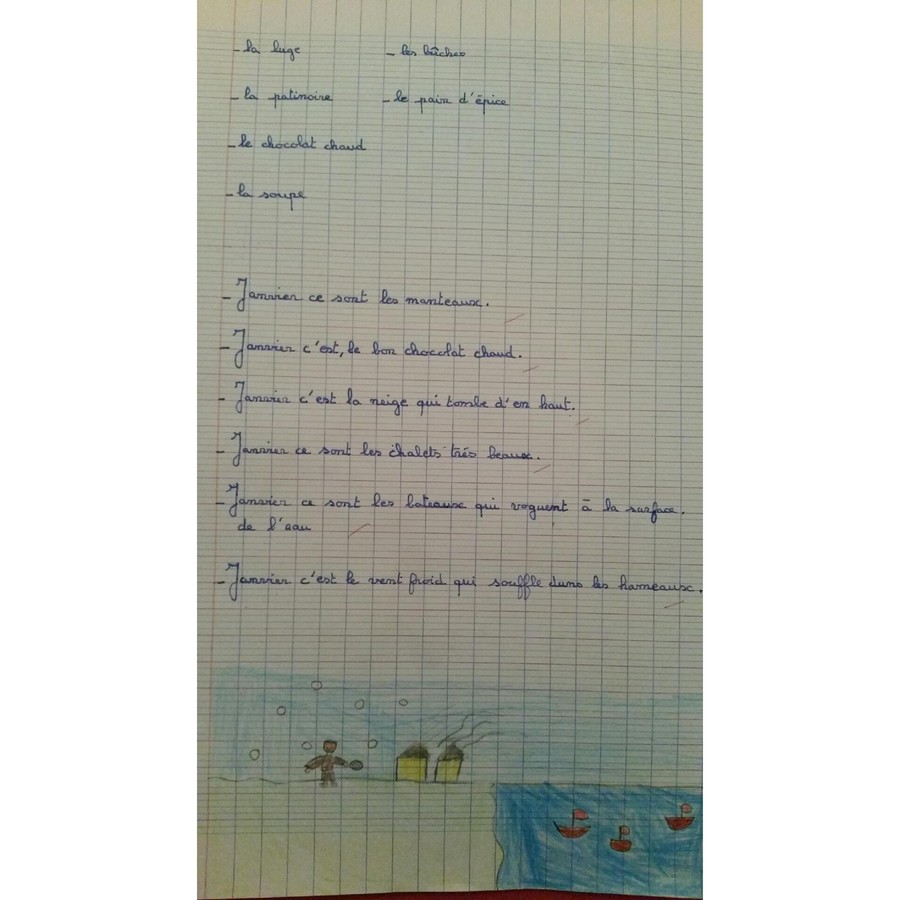 - la luge - les bûches
- la patinoire - le pain d'épice
- le chocolat chaud
- la soupe
- Janvier ce sont les manteaux.
- Janvier c'est, le bon chocolat chaud.
- Janvier c'est la neige qui tombe d'en haut.
- Janvier ce sont les chalets trés beaux.
- Janvier ce sont les bateaux qui voguent à la surface.
de l'eau
- Janvier c'est le vent froid qui souffle dans les hameaux.